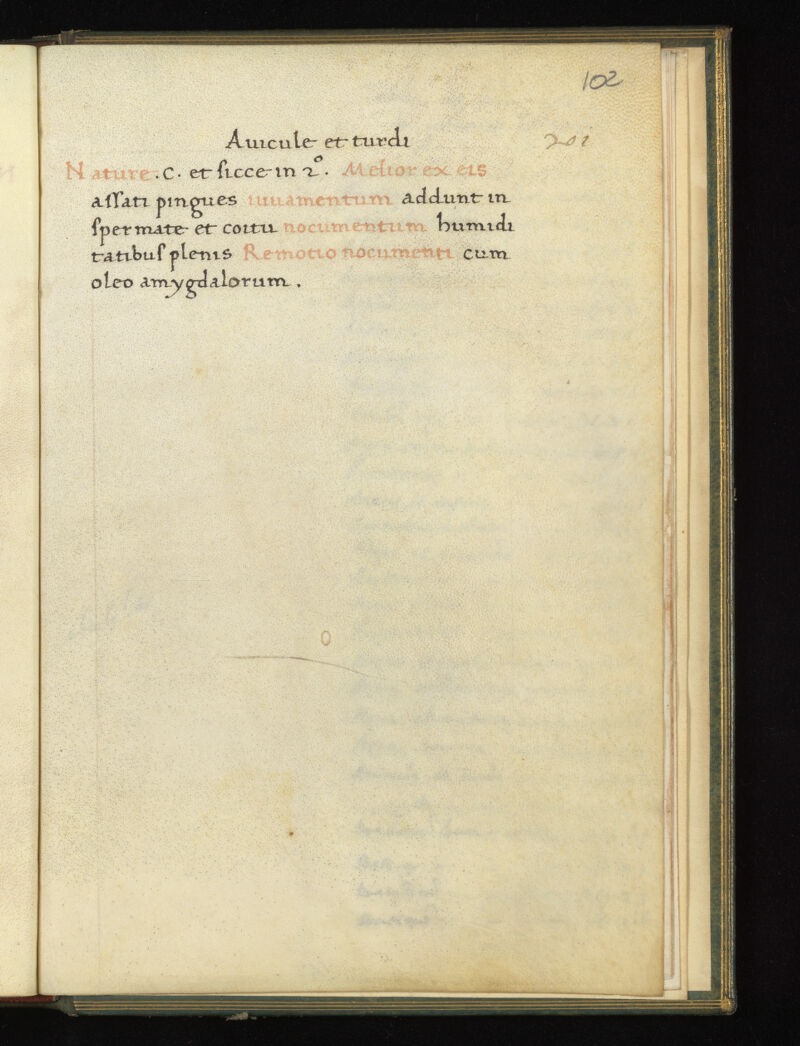 102
201
Auicule et turdi
Nature .c. et sicce in 2º. Melior ex eis
assati pingues iuuamentum addunt in
spermate et coitu nocumentum humidi
tatibus plenis Remotio nocumenti cum
oleo amygdalorum .